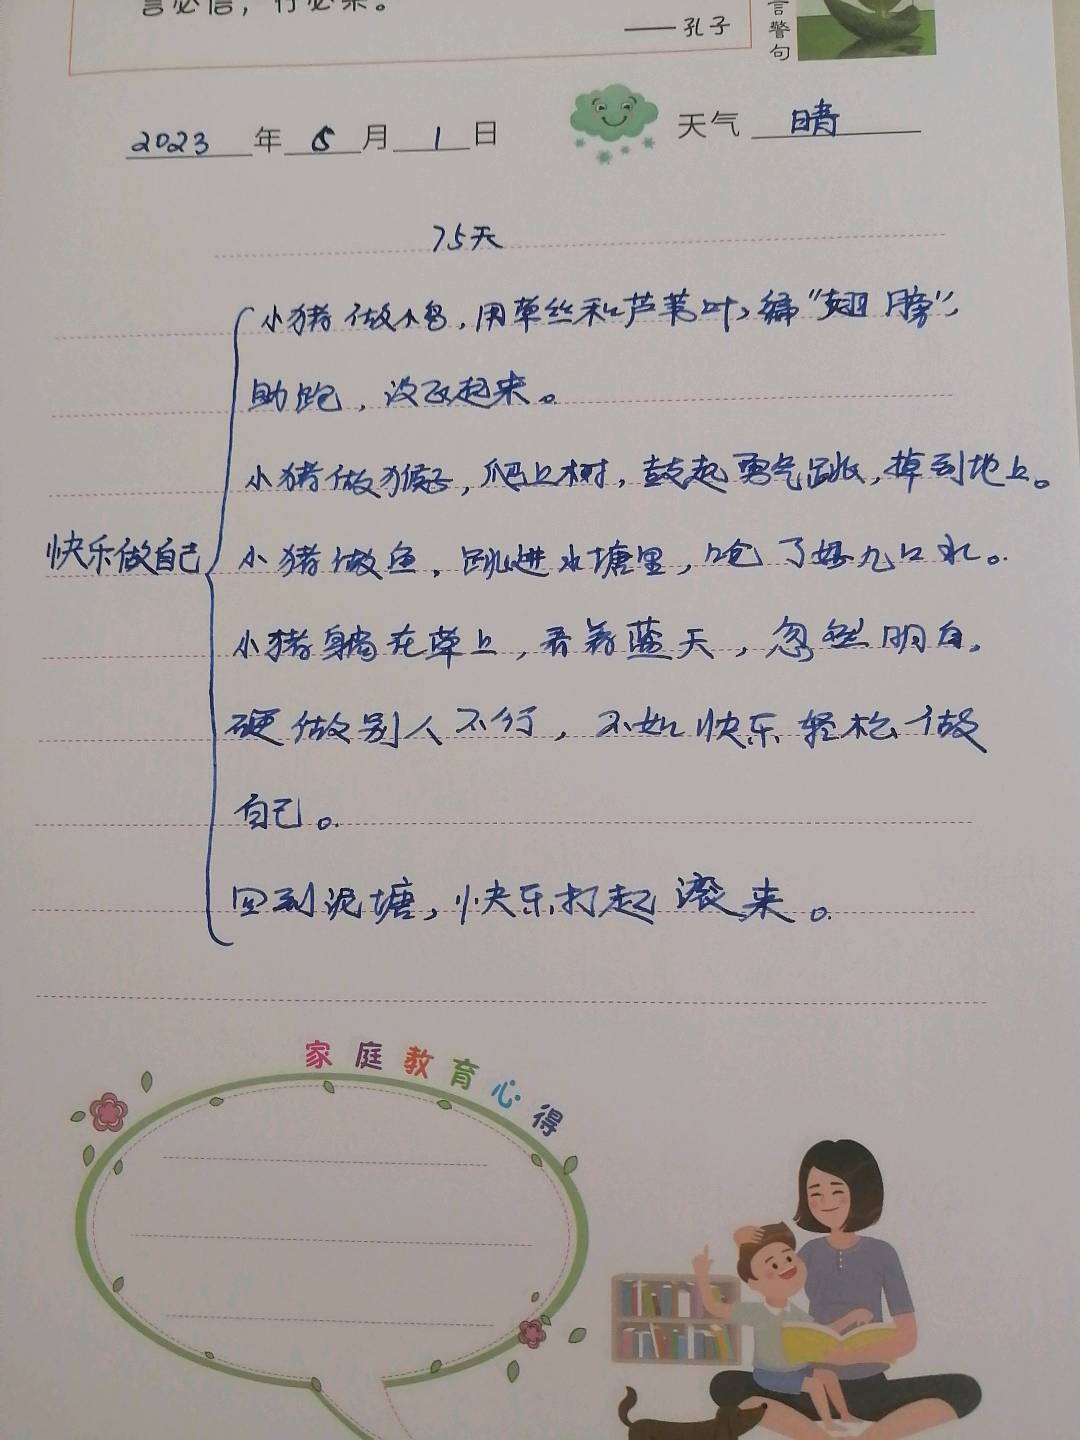 言必信，行必果。
——孔子
言警句
2023年5月1日
天气 晴
75天
小猪做小鸟，用草丝和芦苇叶，编“翅膀”，
助跑，没飞起来。
小猪做猴子，爬上树，鼓起勇气跳，掉到地上。
快乐做自己
小猪做鱼，跳进水塘里，呛了好几口水。
小猪躺在草上，看着蓝天，忽然明白，
硬做别人不行，不如快乐轻松做
自己。
回到泥塘，快乐打起滚来。
家庭教育心得